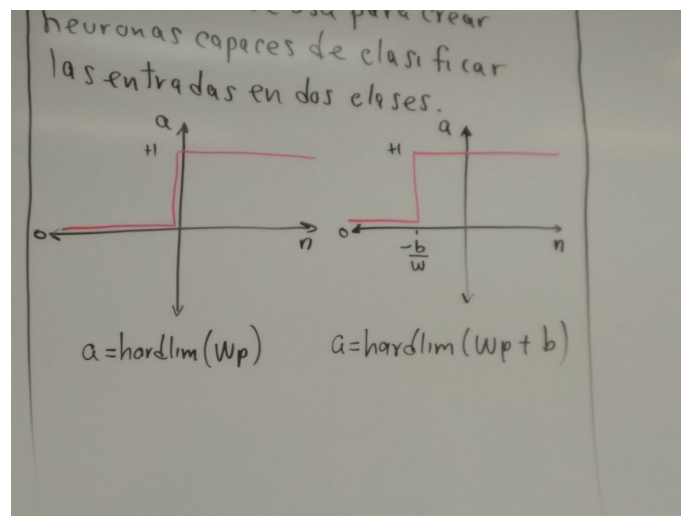 para crear
neuronas capaces de clasificar
las entradas en dos clases.
a
a
+1
+1
0
n
0
n
-b
w
a=hardlim(Wp)
a=hardlim(Wp+b)